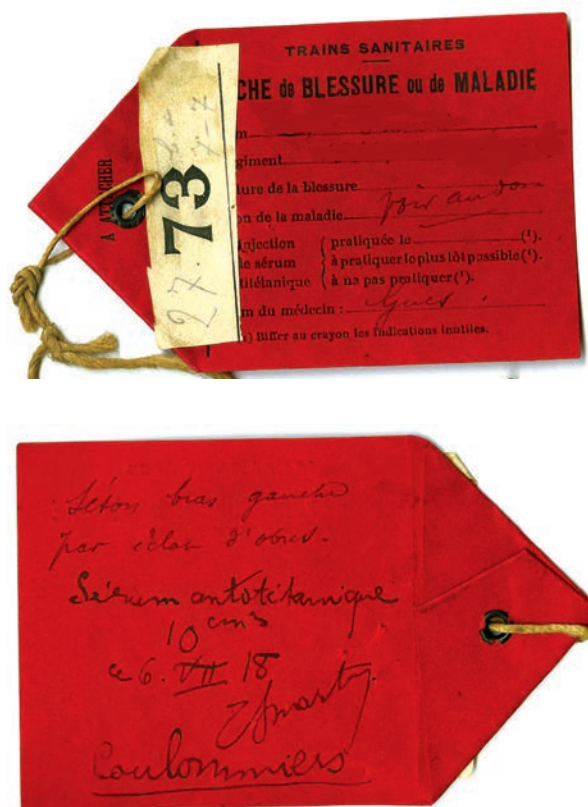 TRAINS SANITAIRES
CHE de BLESSURE ou de MALADIE
m
giment
ture de la blessure
on de la maladie voir au dos
njection pratiquée le (1).
e sérum à pratiquer le plus tôt possible (1).
titétanique à ne pas pratiquer (1).
m du médecin :
) Biffer au crayon les indications inutiles.
A ATTACHER
73
27.
Séton bras gauche
par éclat d'obus.
Sérum antitétanique
10 cm3
ce 6. VII 18
Coulommiers